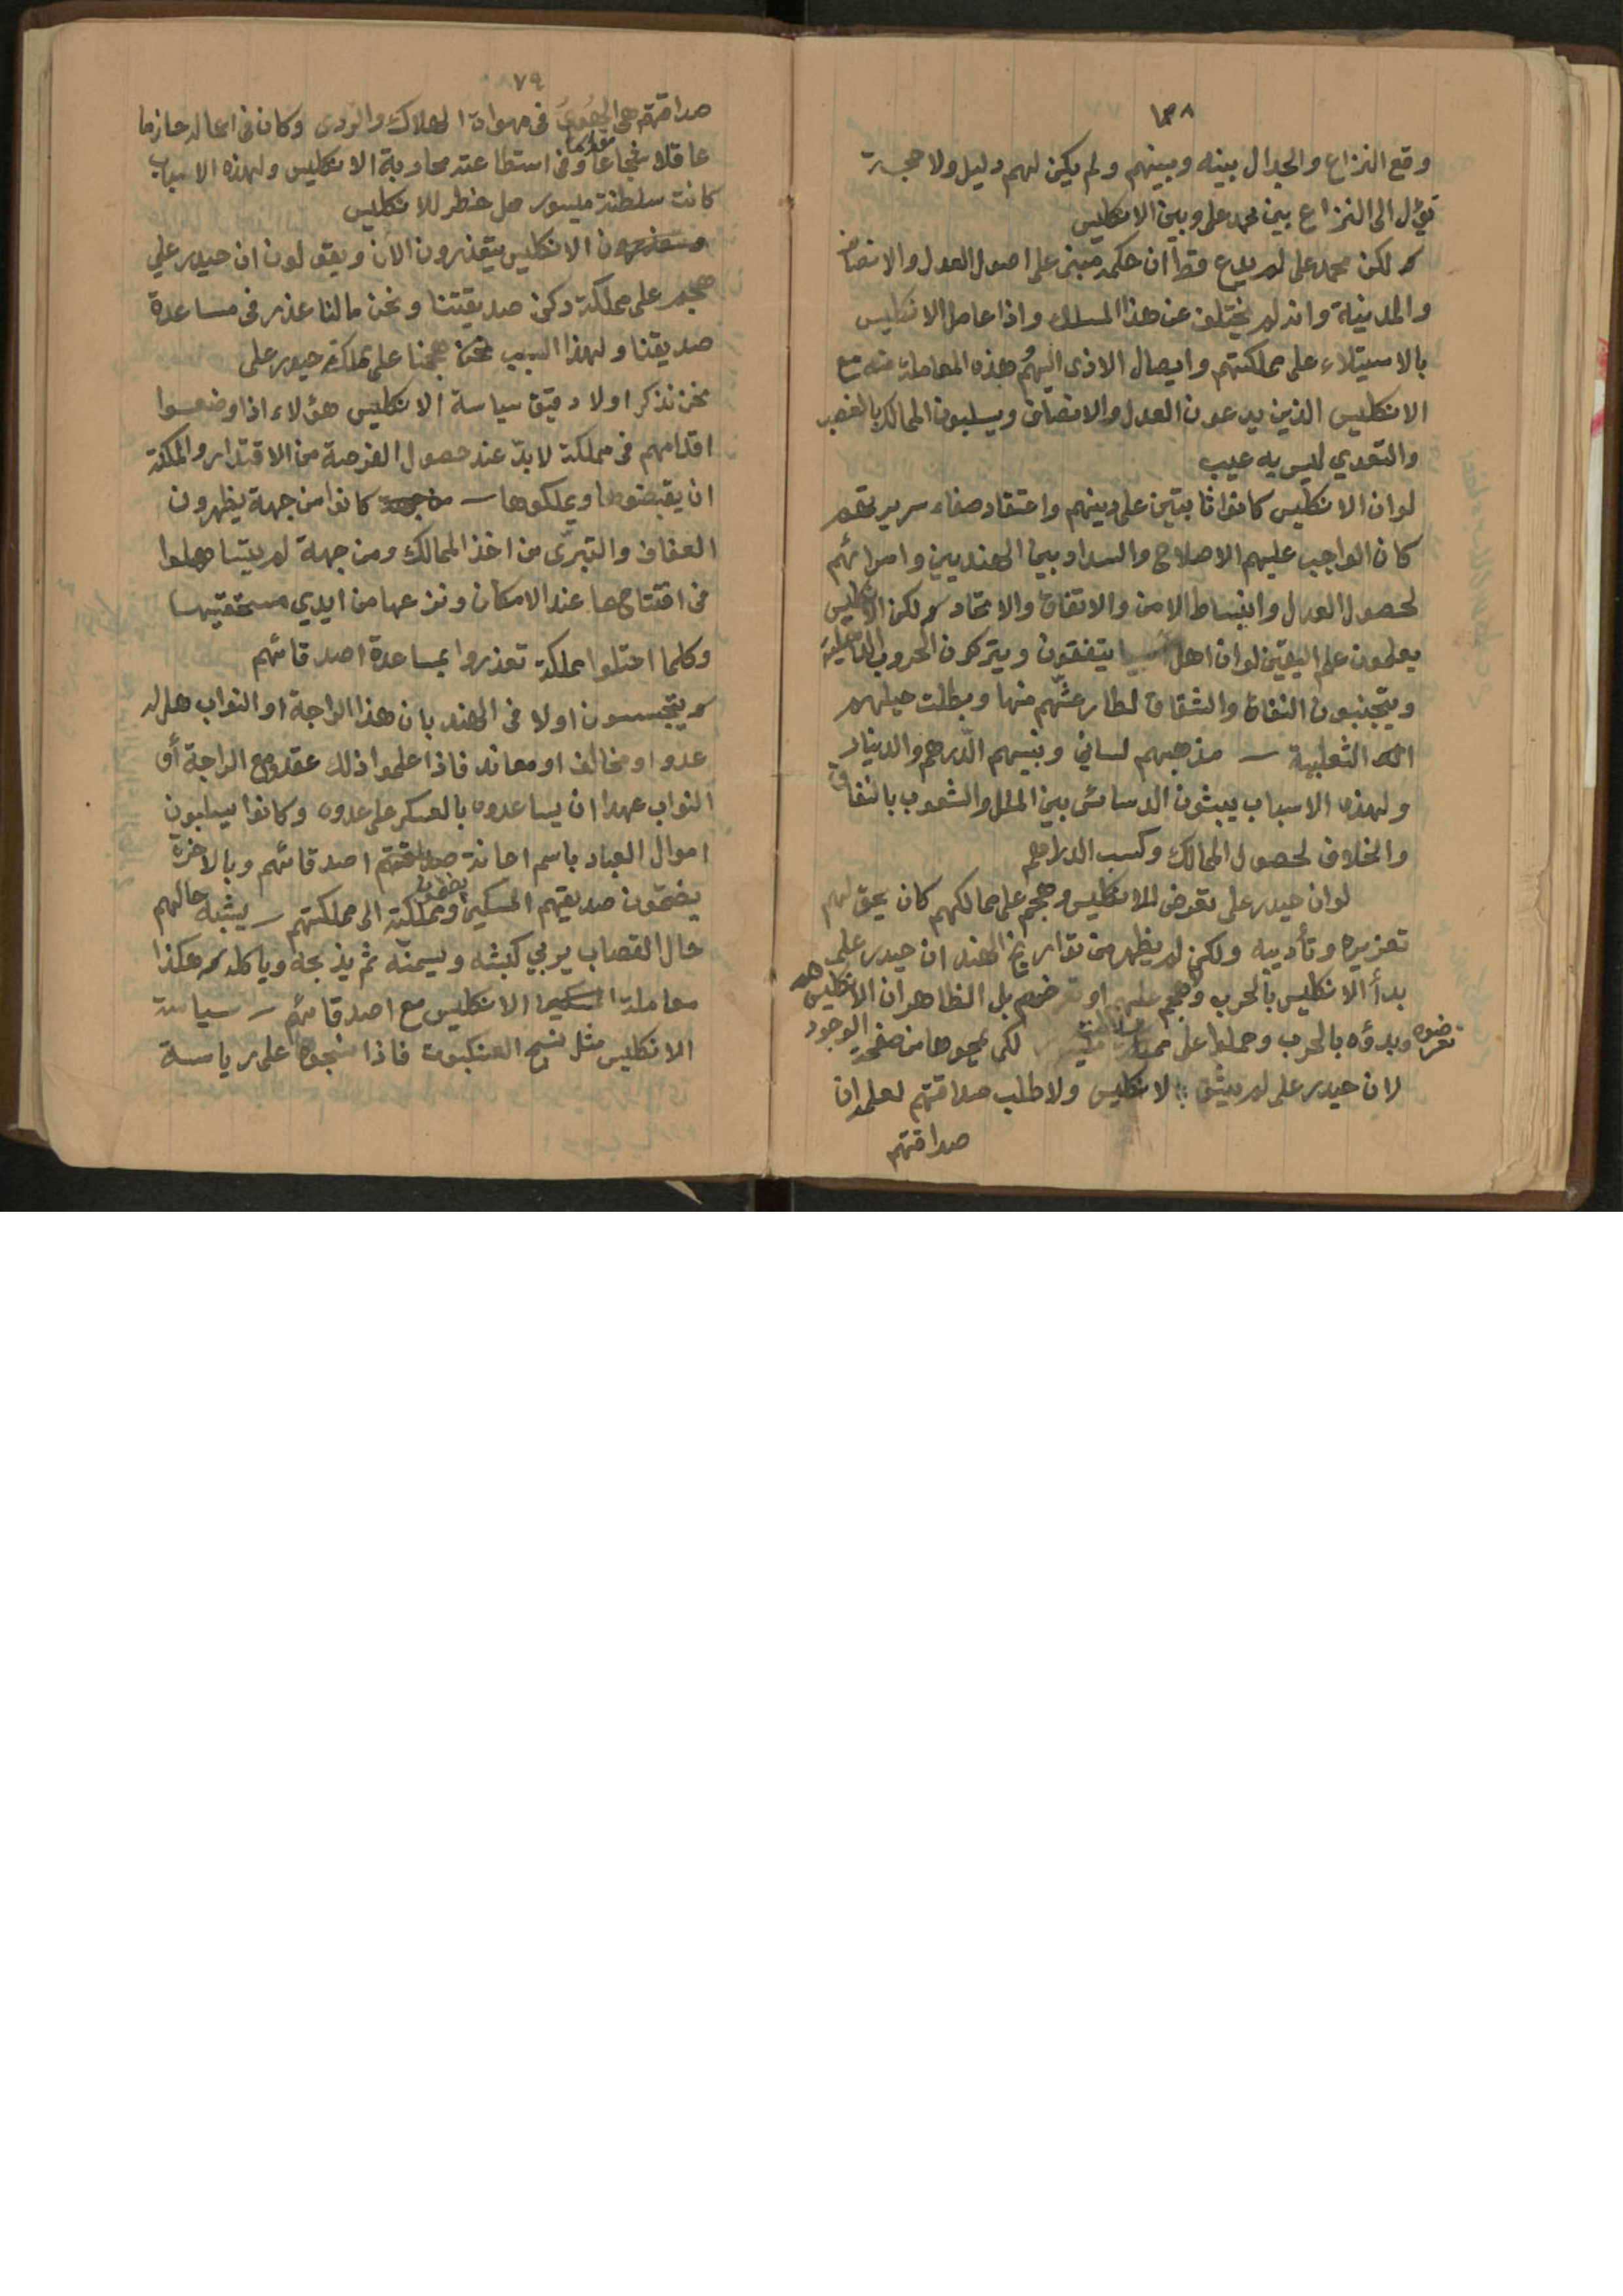 ١٣٨
وقع النزاع والجدال بينه وبينهم ولم يكن لهم دليل ولا حجة
تؤل الى النزاع بين محمد على وبين الانكليس
ولكن محمد على لم يدع قط ان حكمه مبنى على اصول العدل والانصاف
والمدنية وانه لم يختلف عن هذا المسلك واذا عامل الانكليس
بالاستيلاء على مملكتهم وايصال الاذى اليهم وهذه المعاملة منه مع
الانكليس الذين يدعون العدل والانصاف ويسلبون الممالك بالغصب
والتعدي ليس به عيب
لو ان الانكليس كانوا ثابتين على دينهم واعتقاد صفاء سريرتهم
كان الواجب عليهم الاصلاح والسداد بين الهنديين وامرائهم
لحصول العدل وانبساط الامن والاتفاق والاتحاد ولكن الانكليس
يعلمون علم اليقين لو ان اهل يتفقون ويتركون الحروب الداخلية
ويتجنبون النفاق والشقاق لطار عشهم منها وبطلت حيلهم
الثعلبية — مذهبهم لساني ونبيهم الدرهم والدينار
ولهذه الاسباب يبثون الدسائس بين الملل والشعوب بالنفاق
والخلاف لحصول الممالك وكسب الدراهم
لو ان حيدر على تعرض للانكليس وهجم على ممالكهم كان يحق لهم
تعزيره وتأديبه ولكن لم يظهر من تواريخ الهند ان حيدر على
بدأ الانكليس بالحرب وهجم عليهم او تعرضهم بل الظاهر ان الانكليس هم
تعرضوه وبدؤه بالحرب وحملوا على لكى يمحوها من صفحة الوجود
لان حيدر على لم يثق بالانكليس ولا طلب صداقتهم لعلمه ان
صداقتهم
٧٩
صداقتهم هى الهوى فى مهواة الهلاك والردى وكان فى اعماله حازما
عاقلا شجاعا وفى استطاعته محاربة الانكليس ولهذه الاسباب
كانت سلطنة ميسور محل خطر للانكليس
الانكليس يتعذرون الآن ويقولون ان حيدر علي
هجم على مملكة دكن صديقتنا ونحن مالنا عذر فى مساعدة
صديقتنا ولهذا السبب نحن هجمنا على مملكة حيدر على
نحن نذكر اولا دقيق سياسة الانكليس هؤلاء اذا وضعوا
اقدامهم فى مملكة لابد عند حصول الفرصة من الاقتدار والمكنة
ان يقبضوها ويملكوها — كانوا من جهة يظهرون
العفاف والتبرى من اخذ الممالك ومن جهة لم يتساهلوا
فى افتتاحها عند الامكان ونزعها من ايدي مستحقيها
وكلما احتلوا مملكة تعذروا بمساعدة اصدقائهم
ويتجسسون اولا فى الهند بان هذا الراجة او النواب هل له
عدو او مخالف او معاند فاذا علموا ذلك عقدوا مع الراجة أو
النواب عهدا ان يساعدوه بالعسكر على عدوه وكانوا يسلبون
اموال العباد باسم اعانة اصدقائهم وبالآخرة
يضمون صديقهم المسكين ومملكته الى مملكتهم — يشبه حالهم
حال القصاب يربي كبشه ويسمنه ثم يذبحه وياكله وهكذا
معاملة الانكليس مع اصدقائهم — سياسة
الانكليس مثل نسج العنكبوت فاذا نسجوه على رياسة